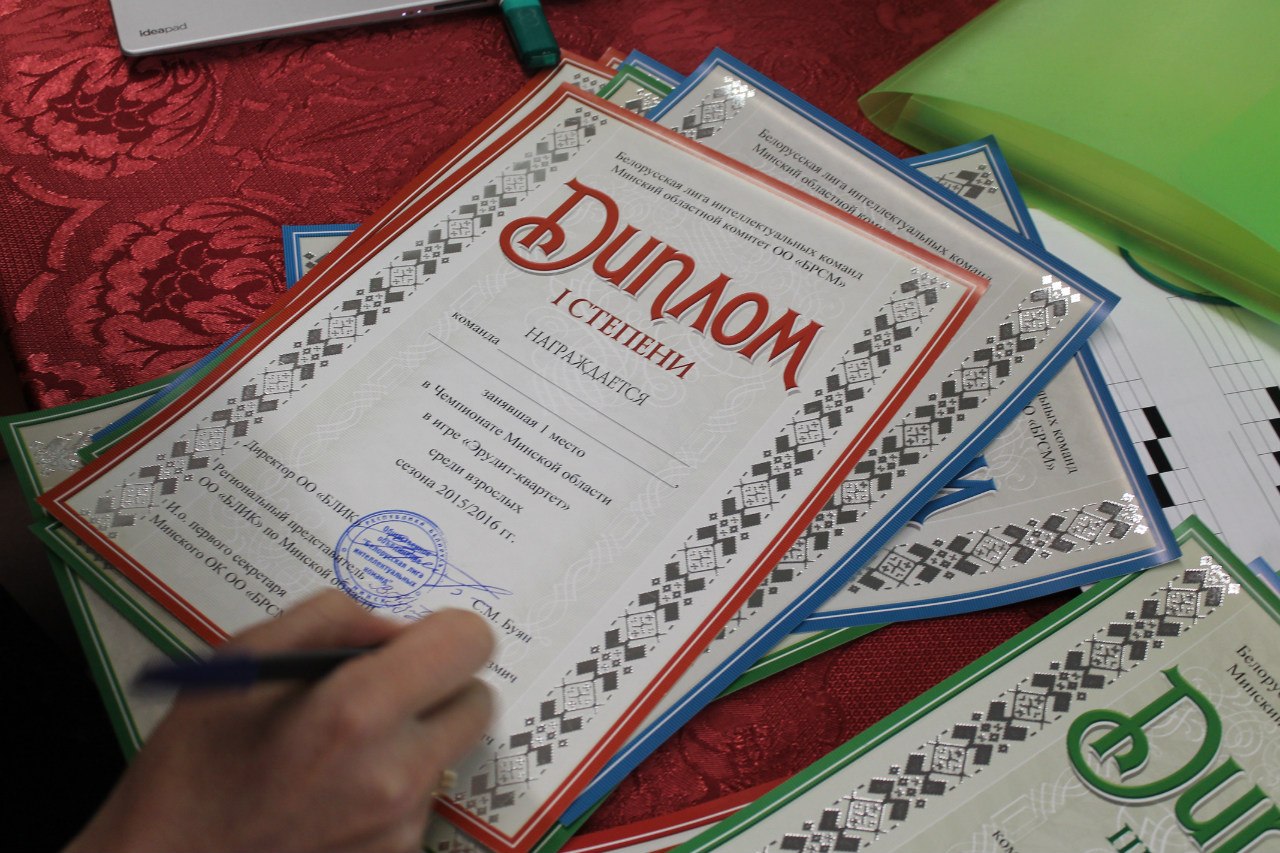 ideapad
Белорусская лига интеллектуальных команд
Минский областной комитет ОО «БРСМ»
Диплом
I СТЕПЕНИ
НАГРАЖДАЕТСЯ
команда
занявшая 1 место
в Чемпионате Минской области
в игре «Эрудит-квартет»
среди взрослых
сезона 2015/2016 гг.
Директор ОО «БЛИК»
С.М. Буян
Региональный представитель
ОО «БЛИК» по Минской
И.о. первого секретаря
Минского ОК ОО
Белорусская лига интеллектуальных команд
Минский областной комитет ОО «БРСМ»
команд
«БРСМ»